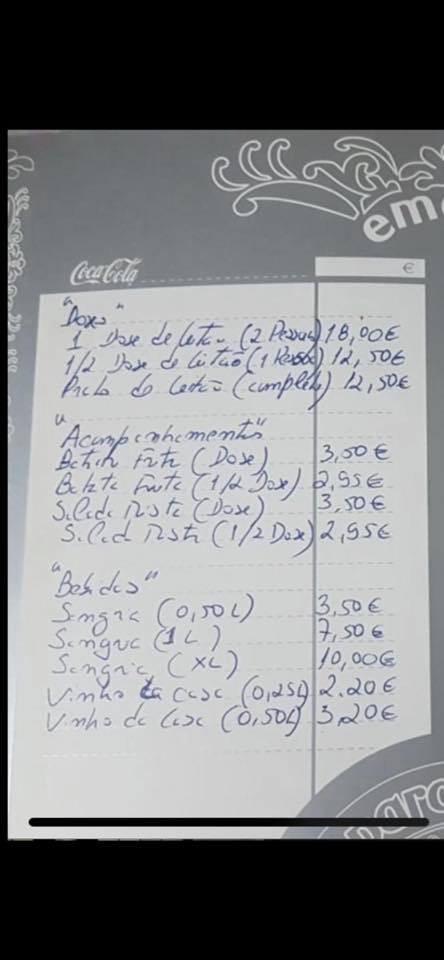 em
Coca-Cola
€
"Doses"
1 Dose de Leitão (2 Pessoas) 18,00€
1/2 Dose de Leitão (1 Pessoa) 12,50€
Prato de Leitão (completo) 12,50€
"Acompanhamentos"
Batata Frita (Dose) 3,50€
Batata Frita (1/2 Dose) 2,95€
Salada Mista (Dose) 3,50€
Salada Mista (1/2 Dose) 2,95€
"Bebidas"
Sangria (0,50L) 3,50€
Sangria (1L) 7,50€
Sangria (XL) 10,00€
Vinho da Casa (0,25L) 2.20€
Vinho da Casa (0,50L) 3,20€